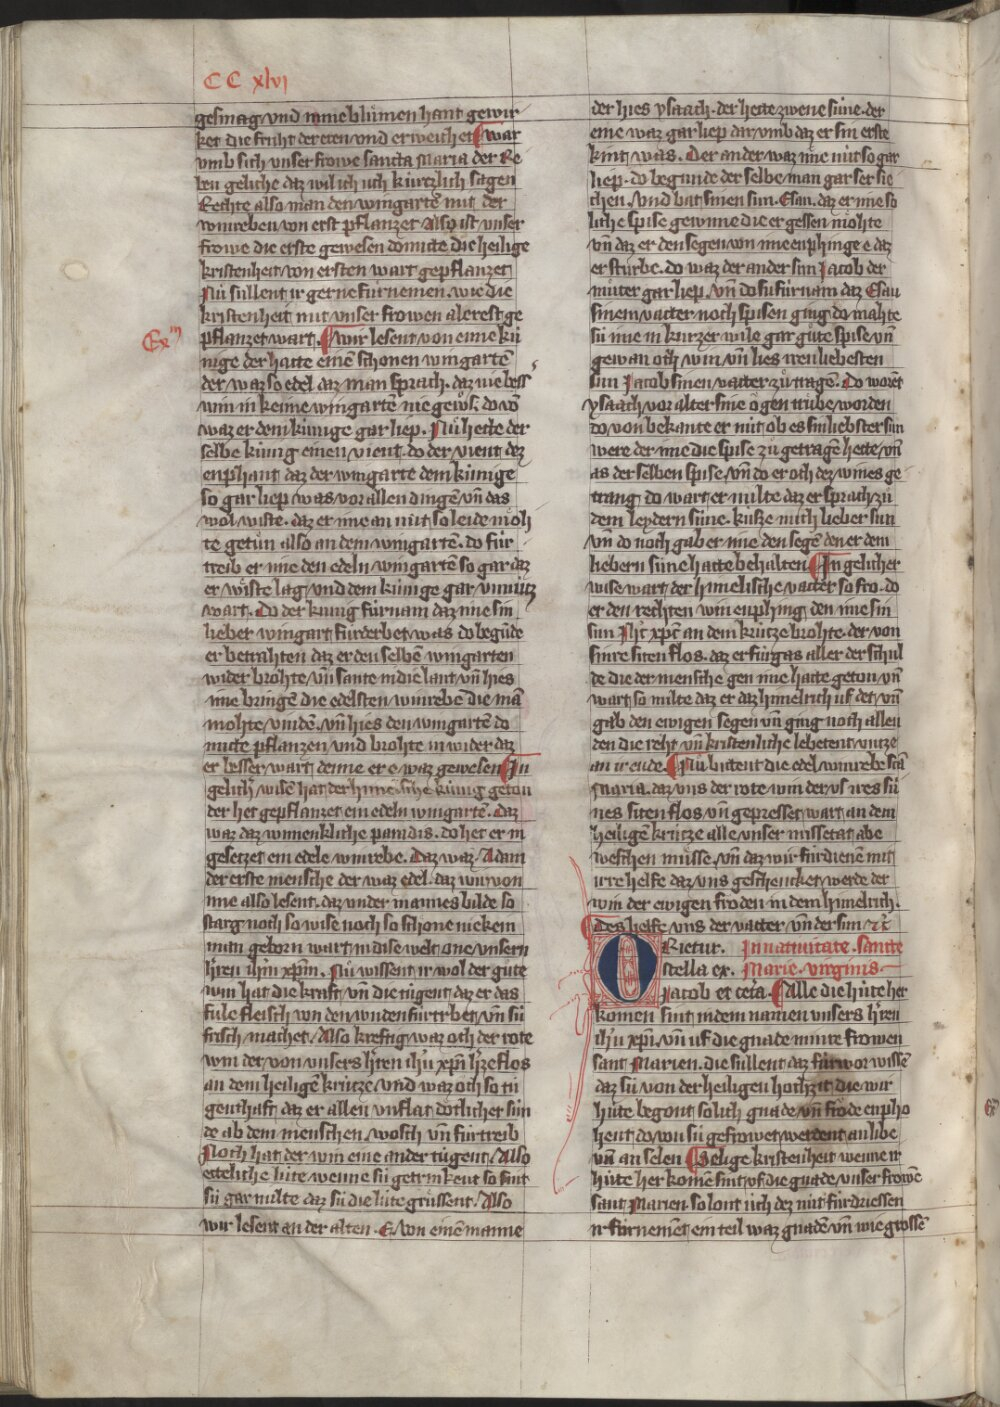 CC xlvi
gesmag. vnd mine blůmen hant gewir
ket die fruht der eren vnd erwerichet war
vmb sich vnser frowe sancta Maria der Re
ben geliche daz wil ich uch kürtzlich sagen
Rechte also man den wingartē mit der
winreben von erst pflanzet. Also ist vnser
frowe die erste gewesen do mitte die heilige
kristenheit von ersten wart gepflanzet
Nü süllent ir gerne fürnemen. wie die
kristenheit mit vnser frowen alerest ge
Exm
pflanzet wart. wir lesent von eime kü
nige der hatte einē schonen wingartē
der waz so edel daz man sprach. daz nie bess
win in keime wingartē nie gewůs. do vō
waz er dem künige gar liep. Nü hette der
selbe künig einen vient. do der vient dez
enphant daz der wingarte dem künige
so gar liep was vor allen dingē vn̄ das
wol wiste. daz er ime an nüt so leide möh
te getůn also an dem wingartē. do für
treib er ime den edeln wingartē so gar daz
er wöste lag vnd dem künige gar vnnütz
wart. Do der künig fürnam daz ime sin
lieber wingart fürderbet was do begūde
er betrahten daz er den selbē wingarten
wider brohte vn̄ sante in die lant vn̄ hies
ime bringē die edelsten winrebē die mā
mohte vindē. vn̄ hies den wingartē do
mitte pflanzen vnd brohte in wider daz
er besser wart denne er e waz gewesen In
gelich wise hat der himelsche künig geton
der het gepflanzet ein edeln wingartē. daz
waz daz winnenkliche paradis. do het er in
gesetzet ein edele winrebe. Daz waz Adam
der erste mensche der waz edel. daz wir von
ime also lesent. daz vnder mannes bilde so
starg noch so wise noch so schöne niekein
man geborn wart in dise welt one vnsern
h̄ren ih̄m xp̄m. Nü wissent ir wol der gůte
win hat die kraft vn̄ die tugent daz er das
fule fleisch von den wnden fürtrbet vn̄ sü
frisch machet. Also kreftig waz och der rote
win der von vnsers h̄ren ih̄u xp̄i h̄ze flos
an dem heiligē krütze vnd waz och so tu
genthaft daz er allen vnflat dötlicher sün
de ab dem menschen wösch vn̄ fürtreib
Noch hat der win eine ander tugent. Also
etteliche lüte wenne sü getrinkent so sint
sü gar milte daz sü die lüte grüssent. Also
wir lesent an der alten. E. Von einē manne
der hies ysaach. der hette zwene süne. der
eine waz gar liep dar vmb daz er sin erste
kint was. Der ander waz ime nüt so gar
liep. do begunde der selbe man gar ser sie
chen. vnd bat sinen sun. Esau. daz er ime so
liche spise gewinne die er gessen möhte
vn̄ daz er den segen von ime enphinge e daz
er sturbe. do waz der ander sun Jacob der
můter gar liep. vn̄ do su fürnam daz Esau
sinem vatter noch spisen ging do mahte
sü ime in kurzer wile gar gůte spise vn̄
gewan och win vn̄ lies iren liebesten
sun Jacob sinen vatter zů tragē. Do worēt
ysaach vor alter sine ögen trübe worden
do von bekante er nüt ob es sin liebster sun
were der ime die spise zů getragē hette vn̄
as der selben spise. vn̄ do er och dez wines ge
trang do wart er milte daz er sprach zů
dem leydern süne. küsse mich lieber sun
vn̄ do noch gab er ime den segē den er dem
liebern sune hatte behalten In gelicher
wise wart der himelische vatter so fro. do
er den rechten win enphing den ime sin
sun Ih̄c xp̄c an dem krütze brohte. der von
sinre siten flos. daz er fürgas aller der schul
de die der mensche gen ime hatte geton vn̄
wart so milte daz er daz himelrich uf det vn̄
gab den ewigen segen vn̄ ging noch allen
den die reht vn̄ kristenliche lebetent vntze
an ir ende. Nü bittent die edel winrebe scā
Maria. daz vns der rote win der vs ires sü
nes siten flos vn̄ gepresset wart an dem
heiligē krütze alle vnser missetat abe
weschen müsse. vn̄ daz wir fürdienē mit
irre helfe daz vns geschencket werde der
win der ewigen fröden in dem himelrich.
Des helfe vns der vatter vn̄ der sun ⁊c̄
Orietur. In natiuitate. sancte
stella ex. Marie. virginis.
Jacob et cetera. Alle die hüte her
komen sint in dem namen vnsers h̄ren
ih̄u xp̄i vn̄ uf die gnade minre frowen
sant Marien. die süllent daz fürwor wissē
daz sü von der heiligen hochzit die wir
hüte begont solich gnade vn̄ fröde enpho
hent do von sü gefrowet werdent an libe
vn̄ an selen Selige kristenheit wenne ir
hüte her komē sint vf die gnade vnser frowē
sant Marien. so lont üch dez nüt fürdriessen
ir fürnemēt ein teil waz gnadē vn̄ wie grossē